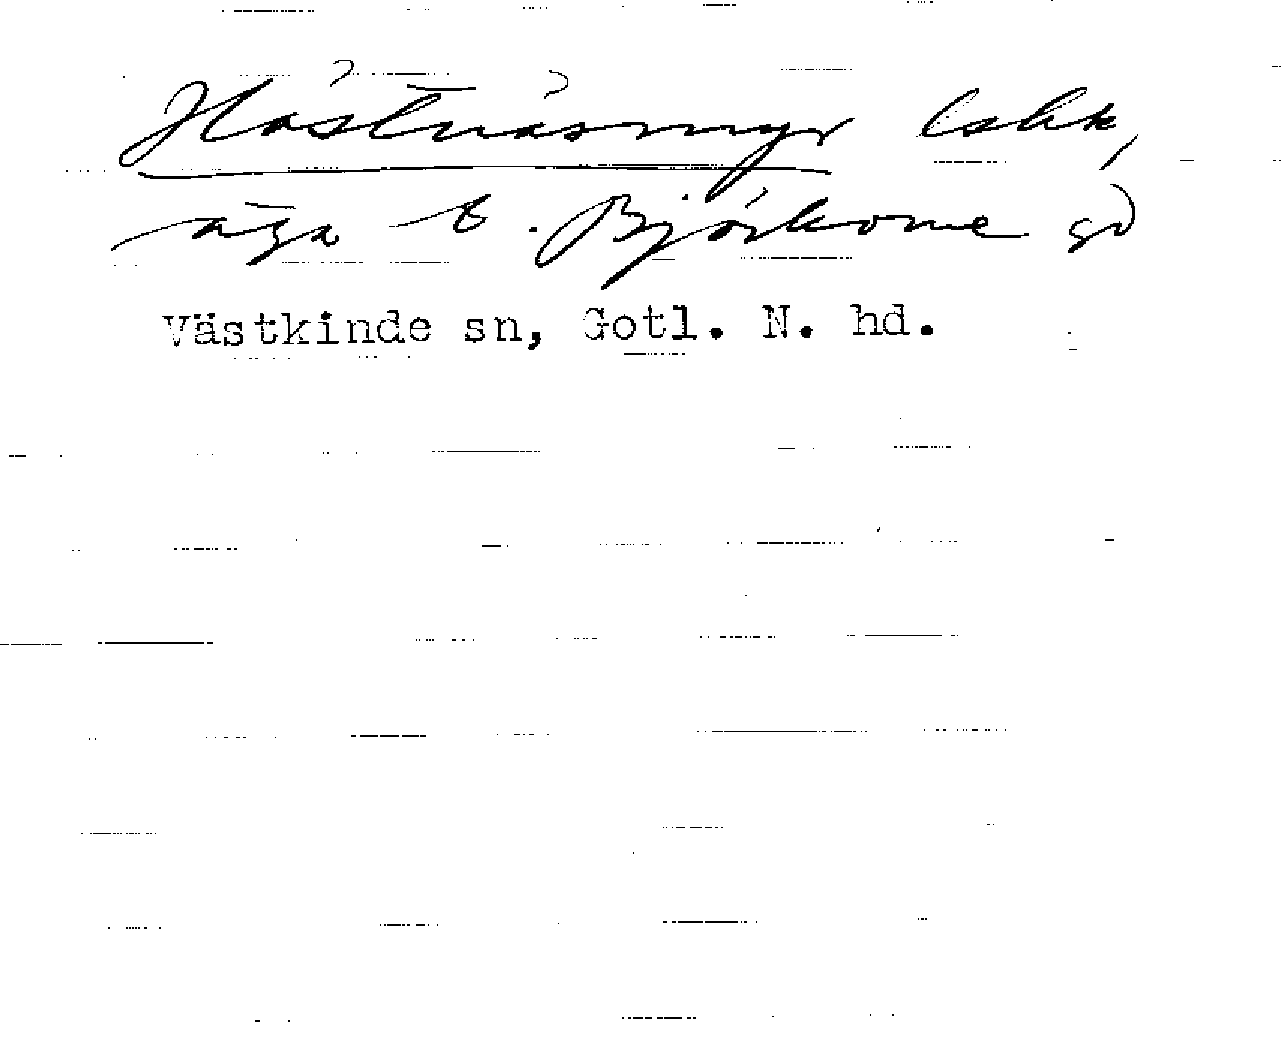 Hästnäsmyr lokk,
äga t. Björkome gd
Västkinde sn, Gotl. N. hd.